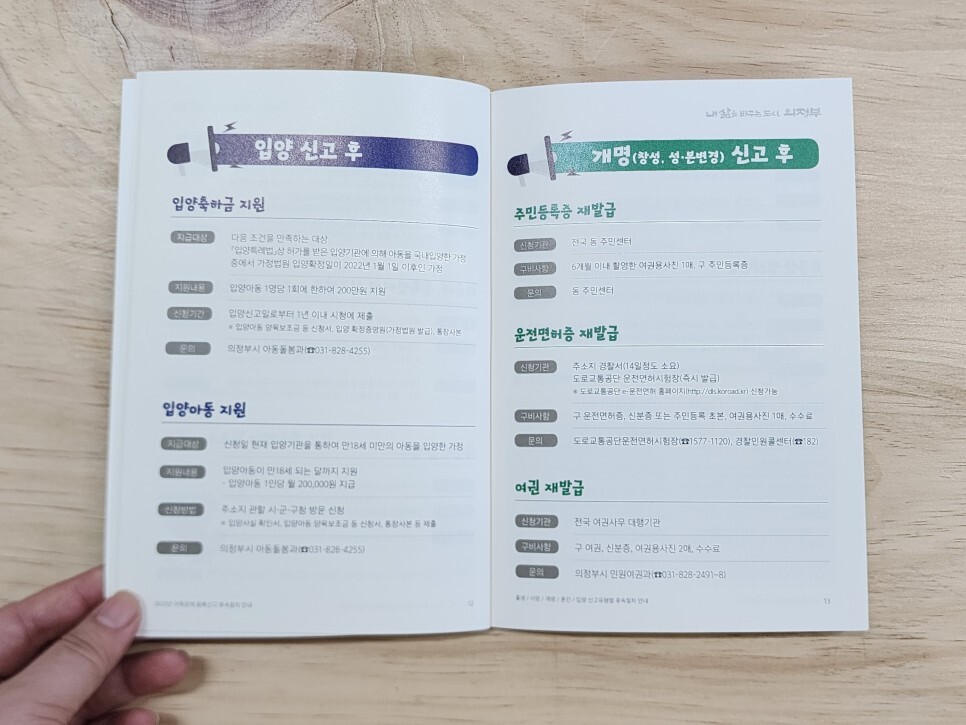 입양 신고 후
입양축하금 지원
지급대상
다음 조건을 만족하는 대상
「입양특례법」상 허가를 받은 입양기관에 의해 아동을 국내입양한 가정
중에서 가정법원 입양확정일이 2022년 1월 1일 이후인 가정
지원내용
입양아동 1명당 1회에 한하여 200만원 지원
신청기간
입양신고일로부터 1년 이내 시청에 제출
※ 입양아동 양육보조금 등 신청서, 입양 확정증명원(가정법원 발급), 통장사본
문의
의정부시 아동돌봄과(☎031-828-4255)
입양아동 지원
지급대상
신청일 현재 입양기관을 통하여 만18세 미만의 아동을 입양한 가정
지원내용
입양아동이 만18세 되는 달까지 지원
- 입양아동 1인당 월 200,000원 지급
신청방법
주소지 관할 시·군·구청 방문 신청
※ 입양사실 확인서, 입양아동 양육보조금 등 신청서, 통장사본 등 제출
문의
의정부시 아동돌봄과(☎031-828-4255)
12
내 삶을 바꾸는 도시, 의정부
개명(창성, 성·본변경) 신고 후
주민등록증 재발급
신청기관
전국 동 주민센터
구비사항
6개월 이내 촬영한 여권용사진 1매, 구 주민등록증
문의
동 주민센터
운전면허증 재발급
신청기관
주소지 경찰서(14일정도 소요)
도로교통공단 운전면허시험장(즉시 발급)
※ 도로교통공단 e-운전면허 홈페이지(http://dls.koroad.kr) 신청가능
구비사항
구 운전면허증, 신분증 또는 주민등록 초본, 여권용사진 1매, 수수료
문의
도로교통공단운전면허시험장(☎1577-1120), 경찰민원콜센터(☎182)
여권 재발급
신청기관
전국 여권사무 대행기관
구비사항
구 여권, 신분증, 여권용사진 2매, 수수료
문의
의정부시 민원여권과(☎031-828-2491~8)
출생 / 사망 / 개명 / 혼인 / 입양 신고유형별 후속절차 안내
13